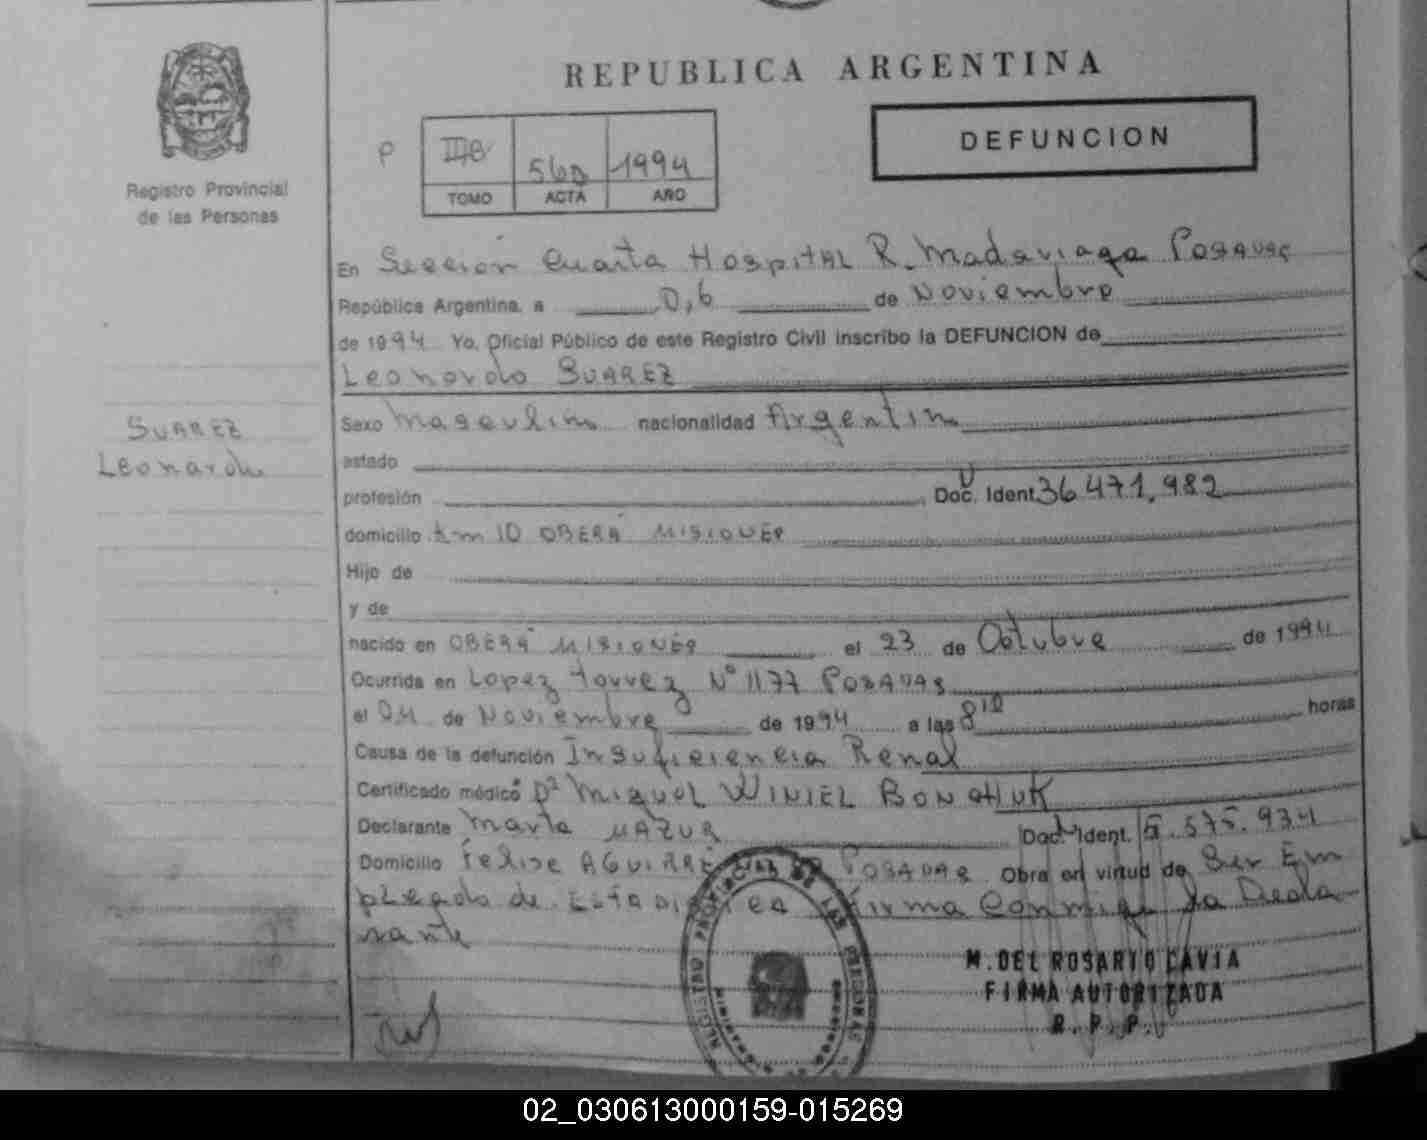 REPUBLICA ARGENTINA
DEFUNCION
Registro Provincial
de las Personas
P
560 1994
TOMO ACTA AÑO
En Sección Cuarta Hospital R. Madariaga Posadas
República Argentina, a 0,6 de Noviembre
de 1994 Yo, Oficial Público de este Registro Civil inscribo la DEFUNCION de
Leonardo SUAREZ
SUAREZ
Leonardo
Sexo Masculino nacionalidad Argentino
estado
profesión Doc. Ident 36 471.982
domicilio Km 10 OBERA MISIONES
Hijo de
y de
nacido en OBERA MISIONES el 23 de Octubre de 1994
Ocurrida en Lopez Torrez N° 1177 POSADAS
el 04 de Noviembre de 1994 a las 8 10 horas
Causa de la defunción Insuficiencia Renal
Certificado médico Dr Miguel WINIEL
Declarante Marta MAZUR Doc. Ident. 5.575.934
Domicilio Felise AGUIRRE POSADAS Obra en virtud de Ser Em
pleado de Estadistica firma conmigo la Decla
rante
M. DEL ROSARIO CAVIA
FIRMA AUTORIZADA
R. P. P.
REGISTRO PROVINCIAL DE LAS PERSONAS
02_030613000159-015269